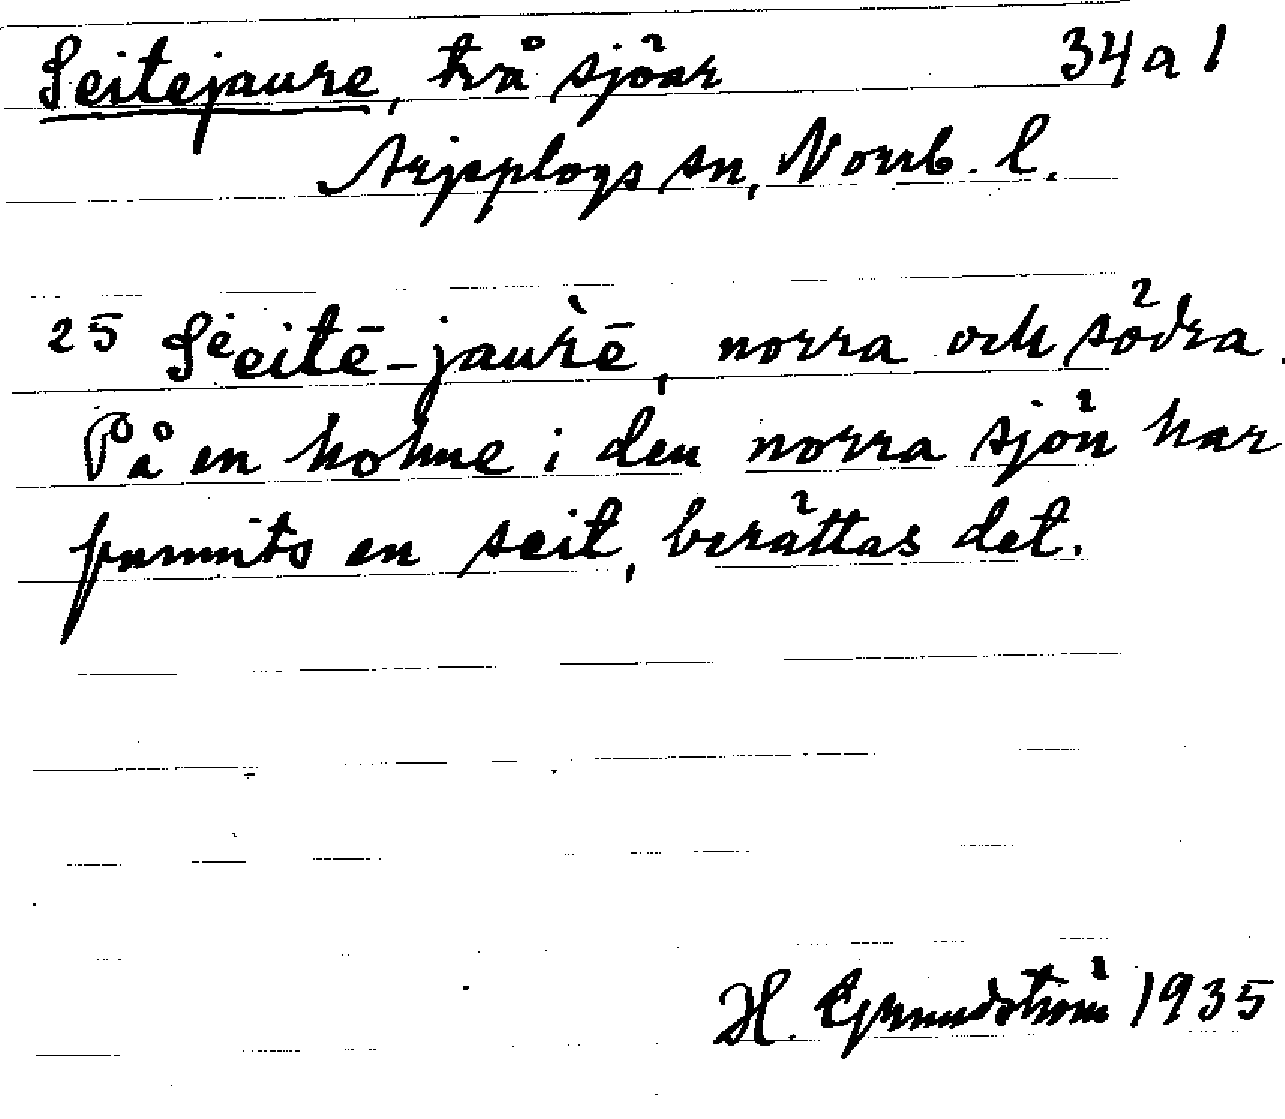 Seitejaure, två sjöar 34 a 1
Arjeplogs sn, Norrb. l.
25 Sieitē-jaùrē, norra och södra.
På en holme i den norra sjön har
funnits en seit, berättas det.
H. Grundström 1935